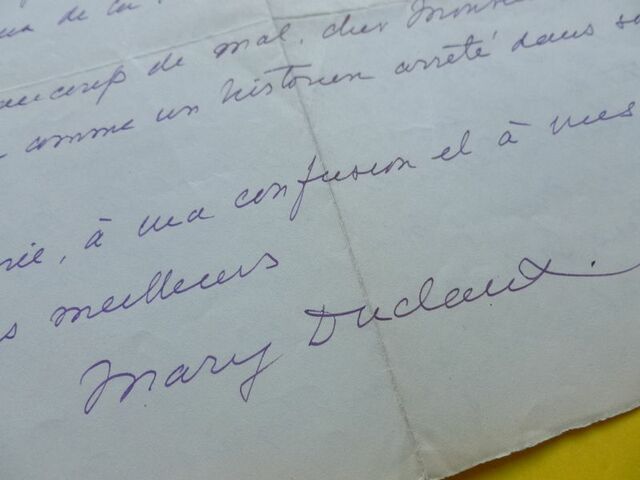 de la
beaucoup de mal, cher Monsieur
comme un historien arrêté dans sa
, à ma confusion et à mes
meilleurs
Mary Duclaux.